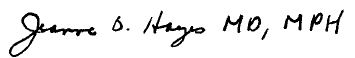 Jeanne D. Hayes MD, MPH